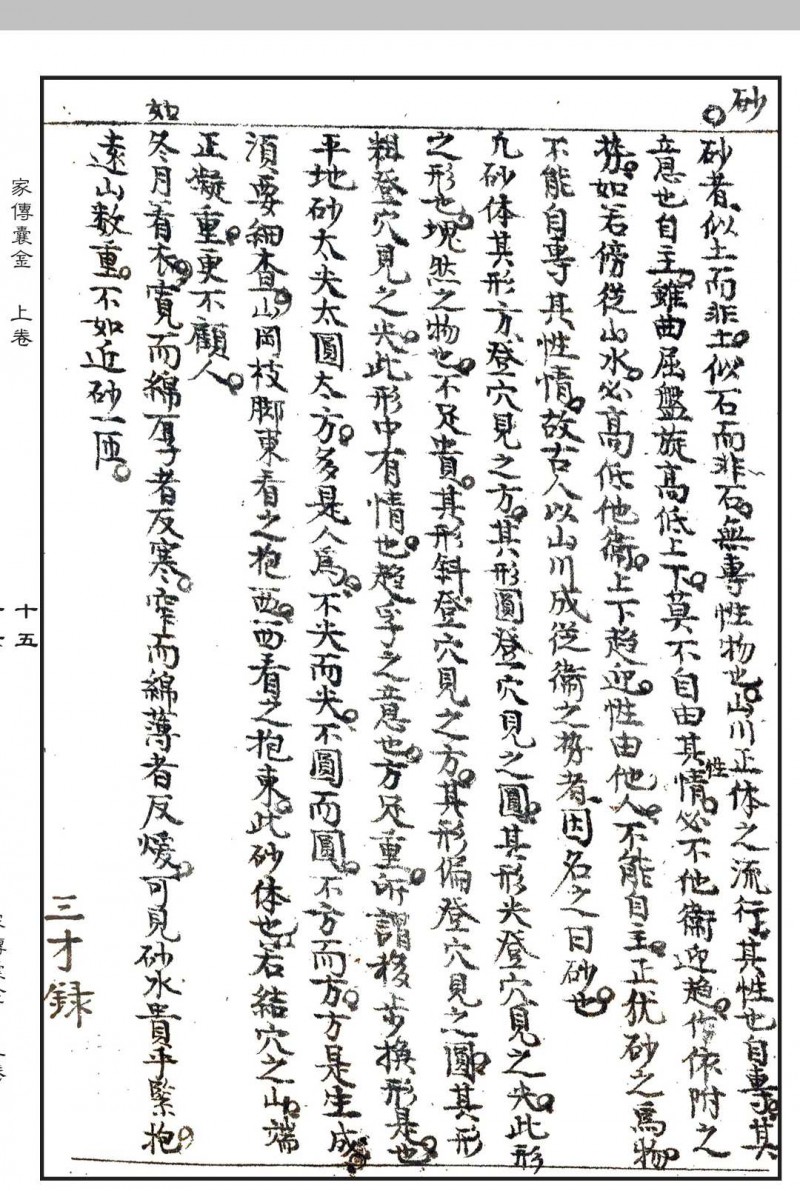 砂
砂者。似土而非土。似石而非石。無專性物也。山川正体之流行。其性也自專。其
意也自主。雖曲屈盤旋高低上下。莫不自由其性情。必不他衛迎趋。作依附之
势。如若傍從山水。必高低他衛。上下趋迎。性由他人。不能自主。正犹砂之爲物
不能自專其性情。故古人以山川成從衛之势者。因名之曰砂也。
凢砂体其形方。登穴見之方。其形圓登穴見之圓。其形尖登穴見之尖。此形
之形也。塊然之物也。不足貴。其形斜登穴見之方。其形偏登穴見之圓。其形
粗登穴見之尖。此形中有情也。趋孚之意也。方足重。所謂移步換形是也。
平地砂太尖太圓太方。多是人爲。不尖而尖。不圓而圓。不方而方。方是生成。
須要細查。山岡枝脚東看之抱西。西看之抱東。此砂体也。若結穴之山。端
正凝重。更不顧人。
如
冬月着衣。寬而綿厚者反寒。窄而綿薄者反煖。可見砂水貴乎緊抱。
遠山數重。不如近砂一匝。
三才録
家傳囊金 上卷
十五